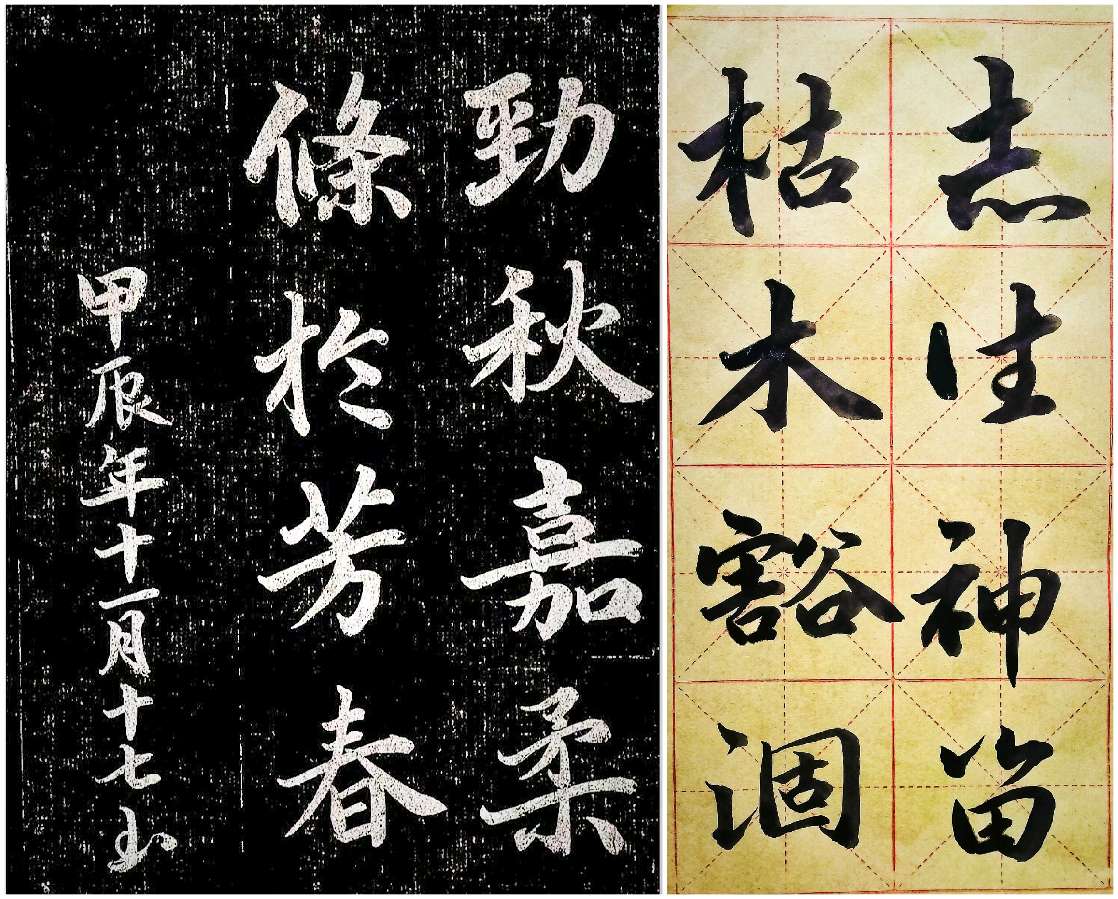 勁秋嘉柔
條於芳春
甲辰年十一月十七
志往神留
枯木豁涸